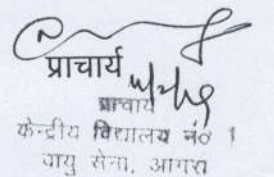 प्राचार्य
प्राचार्य
केन्द्रीय विद्यालय नं० 1
वायु सेना, आगरा